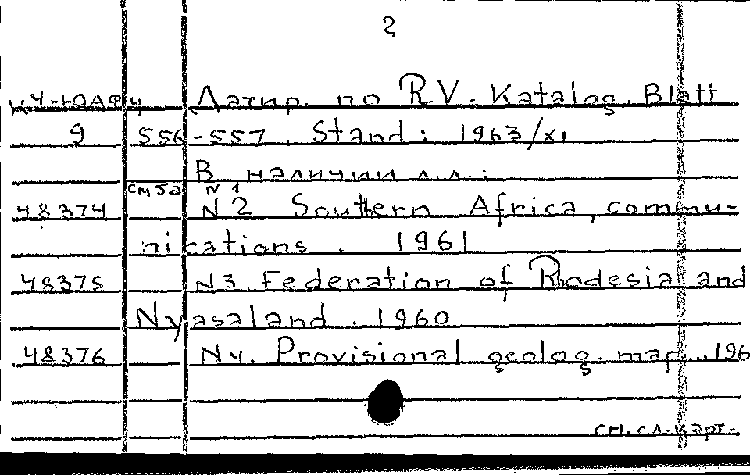 2
Датир. по RV. Katalog. Blatt
9 556-557. Stand: 1963/XI
В наличии л.л.:
см 5а N1
48374 N2 Southern Africa, commu-
nications. 1961
48375 N3 Federation of Rhodesia and
Nyasaland. 1960
48376 N4. Provisional geolog. map. 196
см. сл. карт.